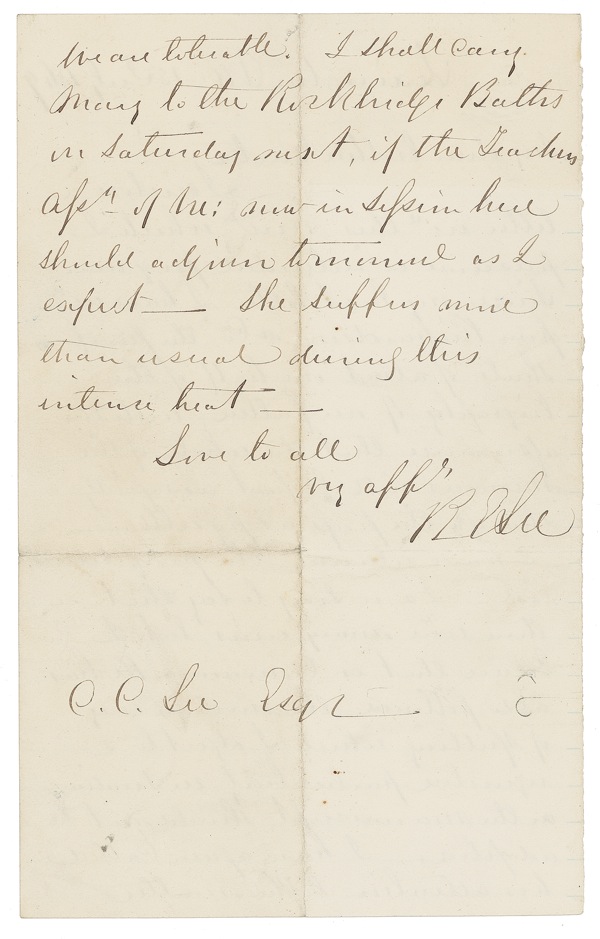 We are tolerable. I shall carry
Mary to the Rockbridge Baths
on Saturday next, if the Teachers
Assn of Va: now in session here
should adjourn tomorrow as I
expect — She suffers more
than usual during this
intense heat —
Love to all
vry affly
R E Lee
C. C. Lee Esqr —